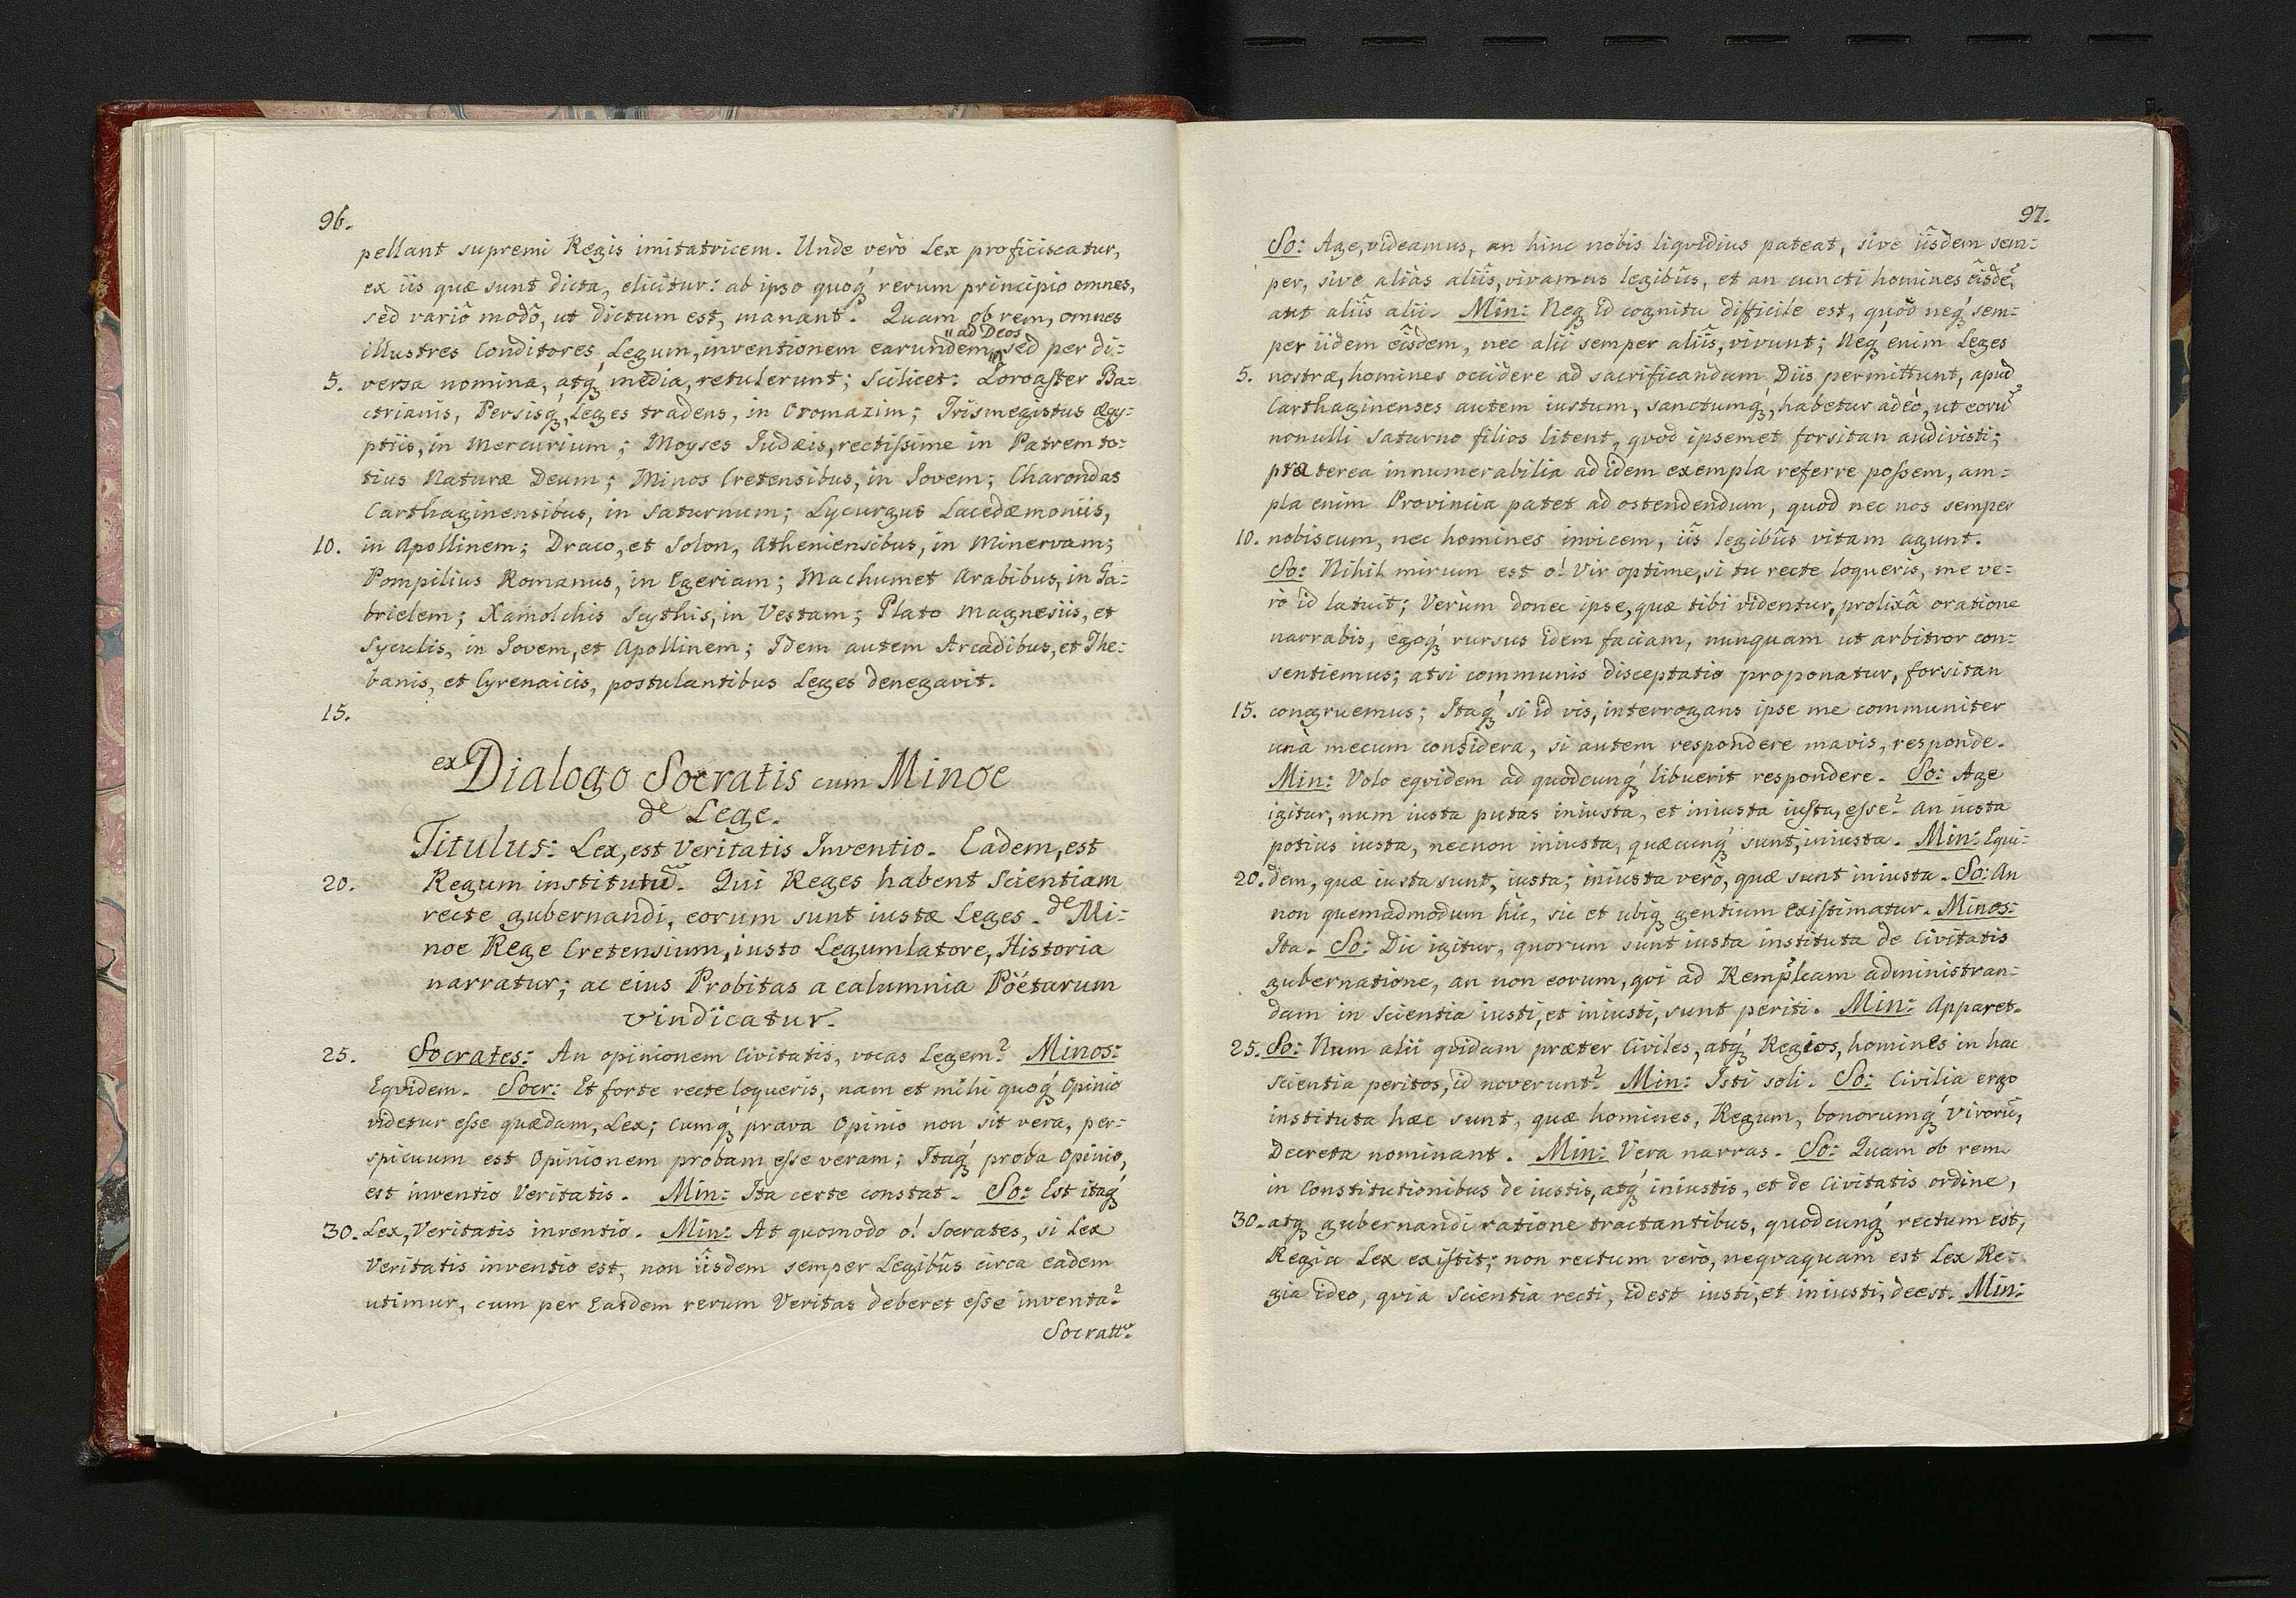 96.
pellant supremi Regis imitatricem. Unde verò Lex proficiscatur,
ex iis quæ sunt dicta, elicitur: ab ipso quoq́ rerum principio omnes,
sed variô modô, ut dictum est, manant. Quam ob rem, omnes
"ad Deos
illustres Conditores Legum, inventionem earundem, sed per di=
5. versa nomina, atq́ media, retulerunt; scilicet: Zoroaster Ba=
ctrianis, Persisq́, Leges tradens, in Oromazim; Trismegistus Ægy=
ptiis, in Mercurium; Moyses Judæis, rectissime in Patrem to=
tius Naturæ Deum; Minos Cretensibus, in Jovem; Charondas
Carthaginensibus, in Saturnum; Lycurgus Lacedæmoniis,
10. in Apollinem; Draco, et Solon, Atheniensibus, in Minervam;
Pompilius Romanus, in Egeriam; Machumet Arabibus, in Ga=
brielem; Xamolchis Scythis, in Vestam; Plato Magnesiis, et
Syculis, in Jovem, et Apollinem; Idem autem Arcadibus, et The=
banis, et Cyrenaicis, postulantibus Leges denegavit.
15.
ex Dialogo Socratis cum Minoe
de Lege.
Titulus: Lex, est Veritatis Inventio. Eadem, est
20. Regum institutũ. Qui Reges habent Scientiam
recte gubernandi, eorum sunt iustæ Leges. de Mi=
noe Rege Cretensium, iusto Legumlatore, Historia
narratur; ac eius Probitas a calumnia Pöetarum
vindicatur.
25. Socrates: An opinionem Civitatis, vocas Legem? Minos:
Eqvidem. Socr: Et forte recte loqueris, nam et mihi quoq́ Opinio
videtur esse quædam, Lex; Cumq́ prava Opinio non sit vera, per=
spicuum est Opinionem probam esse veram; Itaq́ proba Opinio,
est inventio Veritatis. Min: Ita certe constat. So: Est itaq́
30. Lex, Veritatis inventio. Min: At quomodo o! Socrates, si Lex
Veritatis inventio est, non iîsdem semper Legibûs circa eadem
utimur, cum per Easdem rerum Veritas deberet esse inventa?
Socratt:
97.
So: Age, videamus, an hinc nobis liqvidius pateat, sive iîsdem sem=
per, sive aliàs aliîs, vivamus legibûs, et an cuncti homines eîsdẽ,
aut aliîs alii. Min: Neq id cognitu difficile est, quòd neq́ sem=
per iidem eîsdem, nec alii semper aliîs, vivunt; Neq́ enim Leges
5. nostræ, homines occidere ad sacrificandum Diis permittunt, apud
Carthaginenses autem iustum, sanctumq́, habetur adeò, ut eorũ
nonulli Saturno filios litent, qvod ipsemet forsitan audivisti;
præterea innumerabilia ad idem exempla referre possem, am=
pla enim Provincia patet ad ostendendum, quod nec nos semper
10. nobiscum, nec homines invicem, iîs legibûs vitam agunt.
So: Nihil mirum est o! Vir optime, si tu recte loqueris, me ve=
rò id latuit; Verùm donec ipse, quæ tibi videntur, prolixâ oratione
narrabis, egoq́ rursus idem faciam, nunquam ut arbitror con=
sentiemus; atsi communis disceptatio proponatur, forsitan
15. congruemus; Itaq́ si id vis, interrogans ipse me communiter
unà mecum considera, si autem respondere mavis, responde.
Min: Volo eqvidem ad quodcunq́ libuerit respondere. So: Age
igitur, num iusta putas iniusta, et iniusta iusta, esse? An iusta
potius iusta, necnon iniusta, quæcunq́ sunt, iniusta. Min: Equi=
20. dem, quæ iusta sunt, iusta; iniusta verò, quæ sunt iniusta. So: An
non quemadmodum hîc, sic et ubiq gentium existimatur. Minos:
Ita. So: Dic igitur, quorum sunt iusta instituta de Civitatis
gubernatione, an non eorum, qvi ad Rempl̃cam administran=
dam in Scientia iusti, et iniusti, sunt periti. Min: Apparet.
25. So: Num alii qvidam præter Civiles, atq́ Regios, homines in hac
scientia peritos, id noverunt? Min: Isti soli. So: Civilia ergo
instituta hæc sunt, quæ homines, Regum, bonorumq́ Virorũ,
Decreta nominant. Min: Vera narras. So: Quam ob rem
in Constitutionibus de iustis, atq́ iniustis, et de Civitatis ordine,
30. atq gubernandi ratione tractantibus, quodcunq́ rectum est,
Regia Lex existit; non rectum verò, neqvaquam est Lex Re=
gia ideo, qvia Scientia recti, id est iusti, et iniusti, deest. Min: